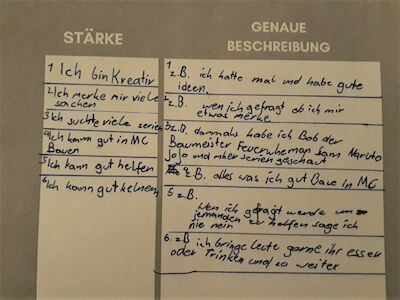 STÄRKE
1 Ich bin Kreativ
2 Ich merke mir viele
sachen
3 Ich suchte viele serien
4 Ich kann gut in MC
Bauen
5 Ich kann gut helfen
6 Ich kann gut kelnern
GENAUE
BESCHREIBUNG
1
z.B. ich hatte mal und habe gute
ideen.
2. z.B. wen ich gefragt ob ich mir
etwas merke
3. z.B. dammals habe ich Bob der
Baumeister Feuerwheman Sam Naruto
Jojo und mher serien geschaut
4 z.B. alles was ich gut Baue in MC
5 z.B.
Wen ich gefragt werde um
jemanden zu helfen sage ich
nie nein
6. z.B ich bringe leute gerne ihr essen
oder Trinken und so weiter